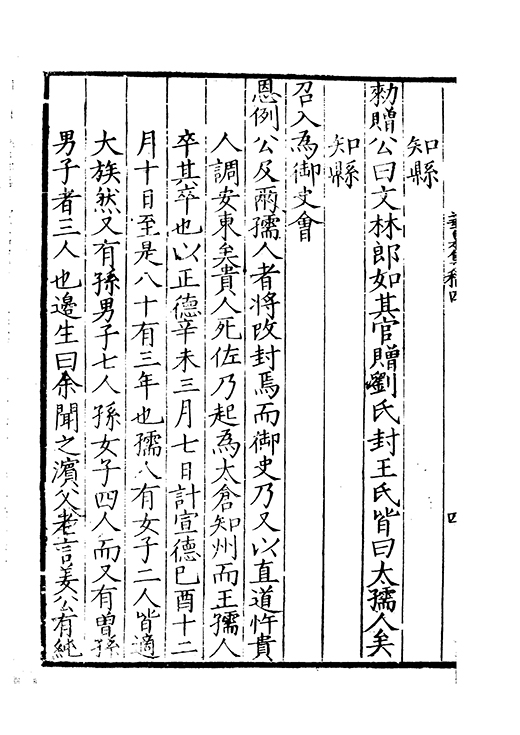 知縣
勑贈公曰文林郎如其官贈劉氏封王氏皆曰太孺人矣
知縣
召入為御史會
恩例公及兩孺人者將改封焉而御史乃又以直道忤貴
人調安東矣貴人死佐乃起為太倉知州而王孺人
卒其卒也以正德辛未三月七日計宣德己酉十二
月十日至是八十有三年也孺人有女子二人皆適
大族然又有孫男子七人孫女子四人而又有曾孫
男子者三人也邊生曰余聞之濱父老言姜公有純
四